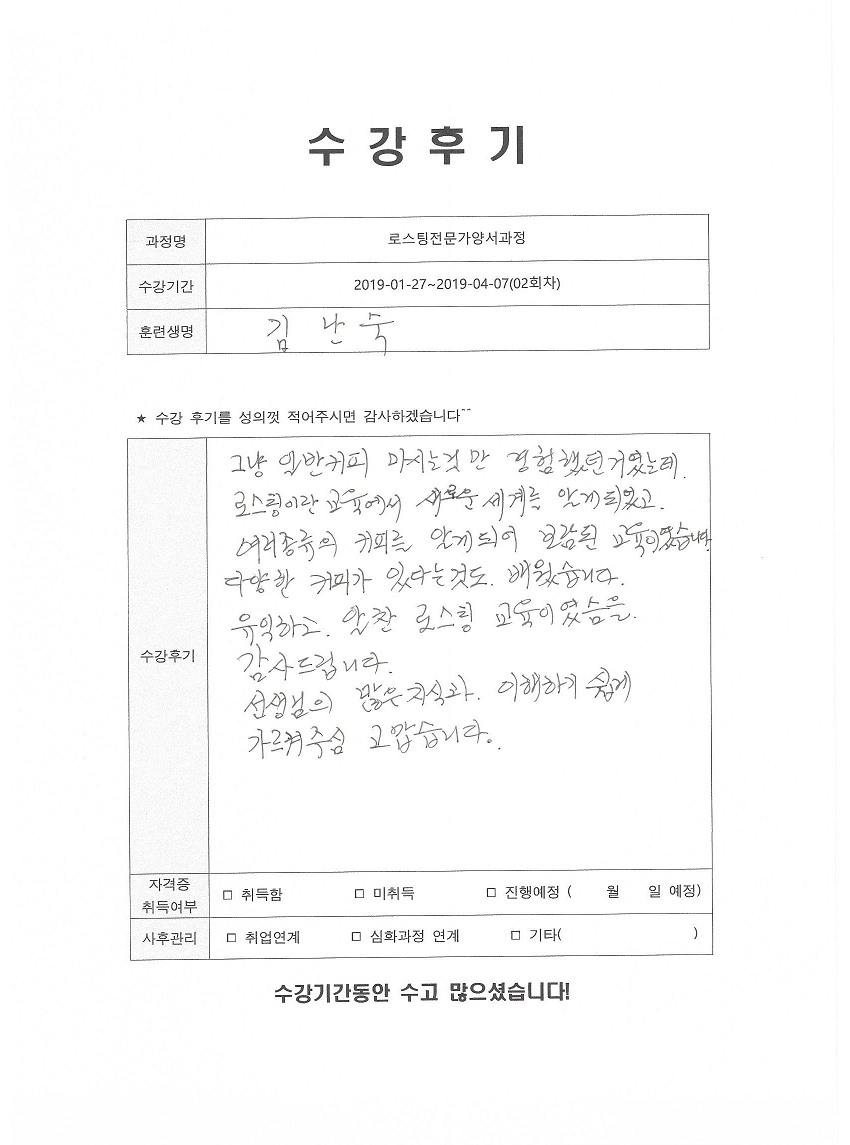 수 강 후 기
과정명 로스팅전문가양서과정
수강기간 2019-01-27~2019-04-07(02회차)
훈련생명 김 난 숙
★ 수강 후기를 성의껏 적어주시면 감사하겠습니다^^
수강후기
그냥 일반커피 마시는것만 경험했던거였는데.
로스팅이란 교육에서 새로운 세계를 알게되었고.
여러종류의 커피를 알게되어 보람된 교육이였습니다
다양한 커피가 있다는것도. 배웠습니다.
유익하고. 알찬 로스팅 교육이였슴을.
감사드립니다.
선생님의 많은지식과. 이해하기 쉽게
가르켜주심 고맙습니다.
자격증 취득여부 □ 취득함 □ 미취득 □ 진행예정 ( 월 일 예정)
사후관리 □ 취업연계 □ 심화과정 연계 □ 기타( )
수강기간동안 수고 많으셨습니다!